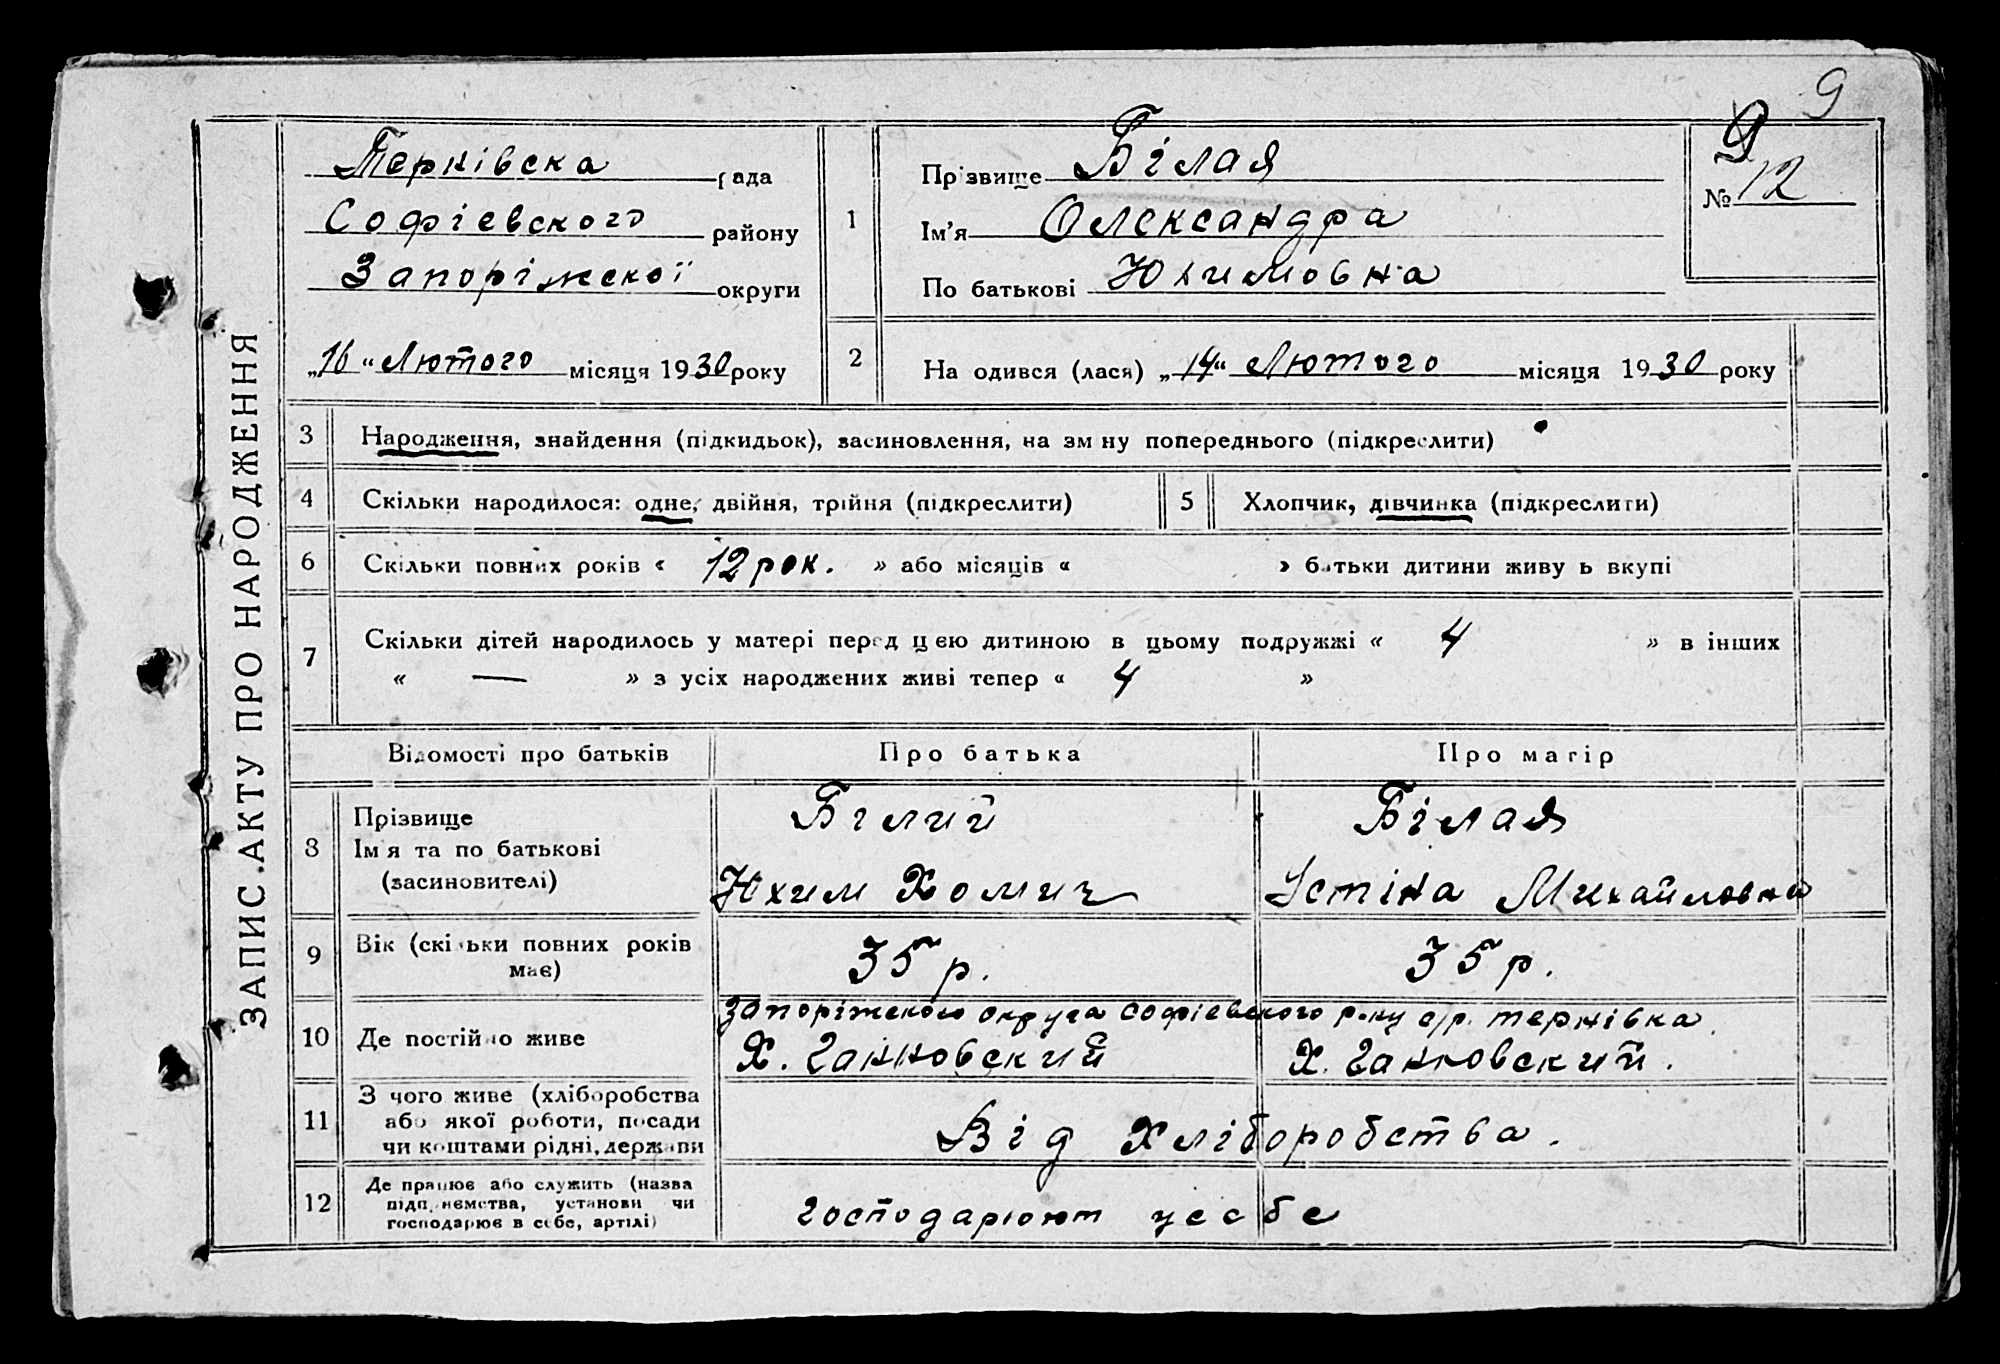 9
ЗАПИС АКТУ ПРО НАРОДЖЕННЯ
Тернівска рада
Софієвского району
Запоріжскої округи
„16“ Лютого місяця 1930 року
1
Прізвище Білая
Ім'я Олександра
По батькові Юхимовна
9
№ 12
2
На одився (лася) „14“ Лютого місяця 1930 року
3 Народження, знайдення (підкидьок), засиновлення, на зм ну попереднього (підкреслити)
4 Скільки народилося: одне, двійня, трійня (підкреслити)
5 Хлопчик, дівчинка (підкреслити)
6 Скільки повних років « 12 рок. » або місяців « » батьки дитини живу ь вкупі
7 Скільки дітей народилось у матері перед цією дитиною в цьому подружжі « 4 » в інших
« — » з усіх народжених живі тепер « 4 »
Відомості про батьків Про батька Про матір
8 Прізвище
Ім я та по батькові
(засиновителі)
Білий
Юхим Хомич
Білая
Устіна Михайловна
9 Вік (скільки повних років
має)
35 р.
35 р.
10 Де постійно живе
Запоріжскою округа Софієвского р-ну с/р. Тернівка.
Х. Ганновский
Х. Ганновский.
11 З чого живе (хліборобства
або якої роботи, посади
чи коштами рідні, держави
Від Хліборобства.
12 Де працює або служить (назва
підприємства, установи чи
господарює в себе, артілі)
господарюют усебе